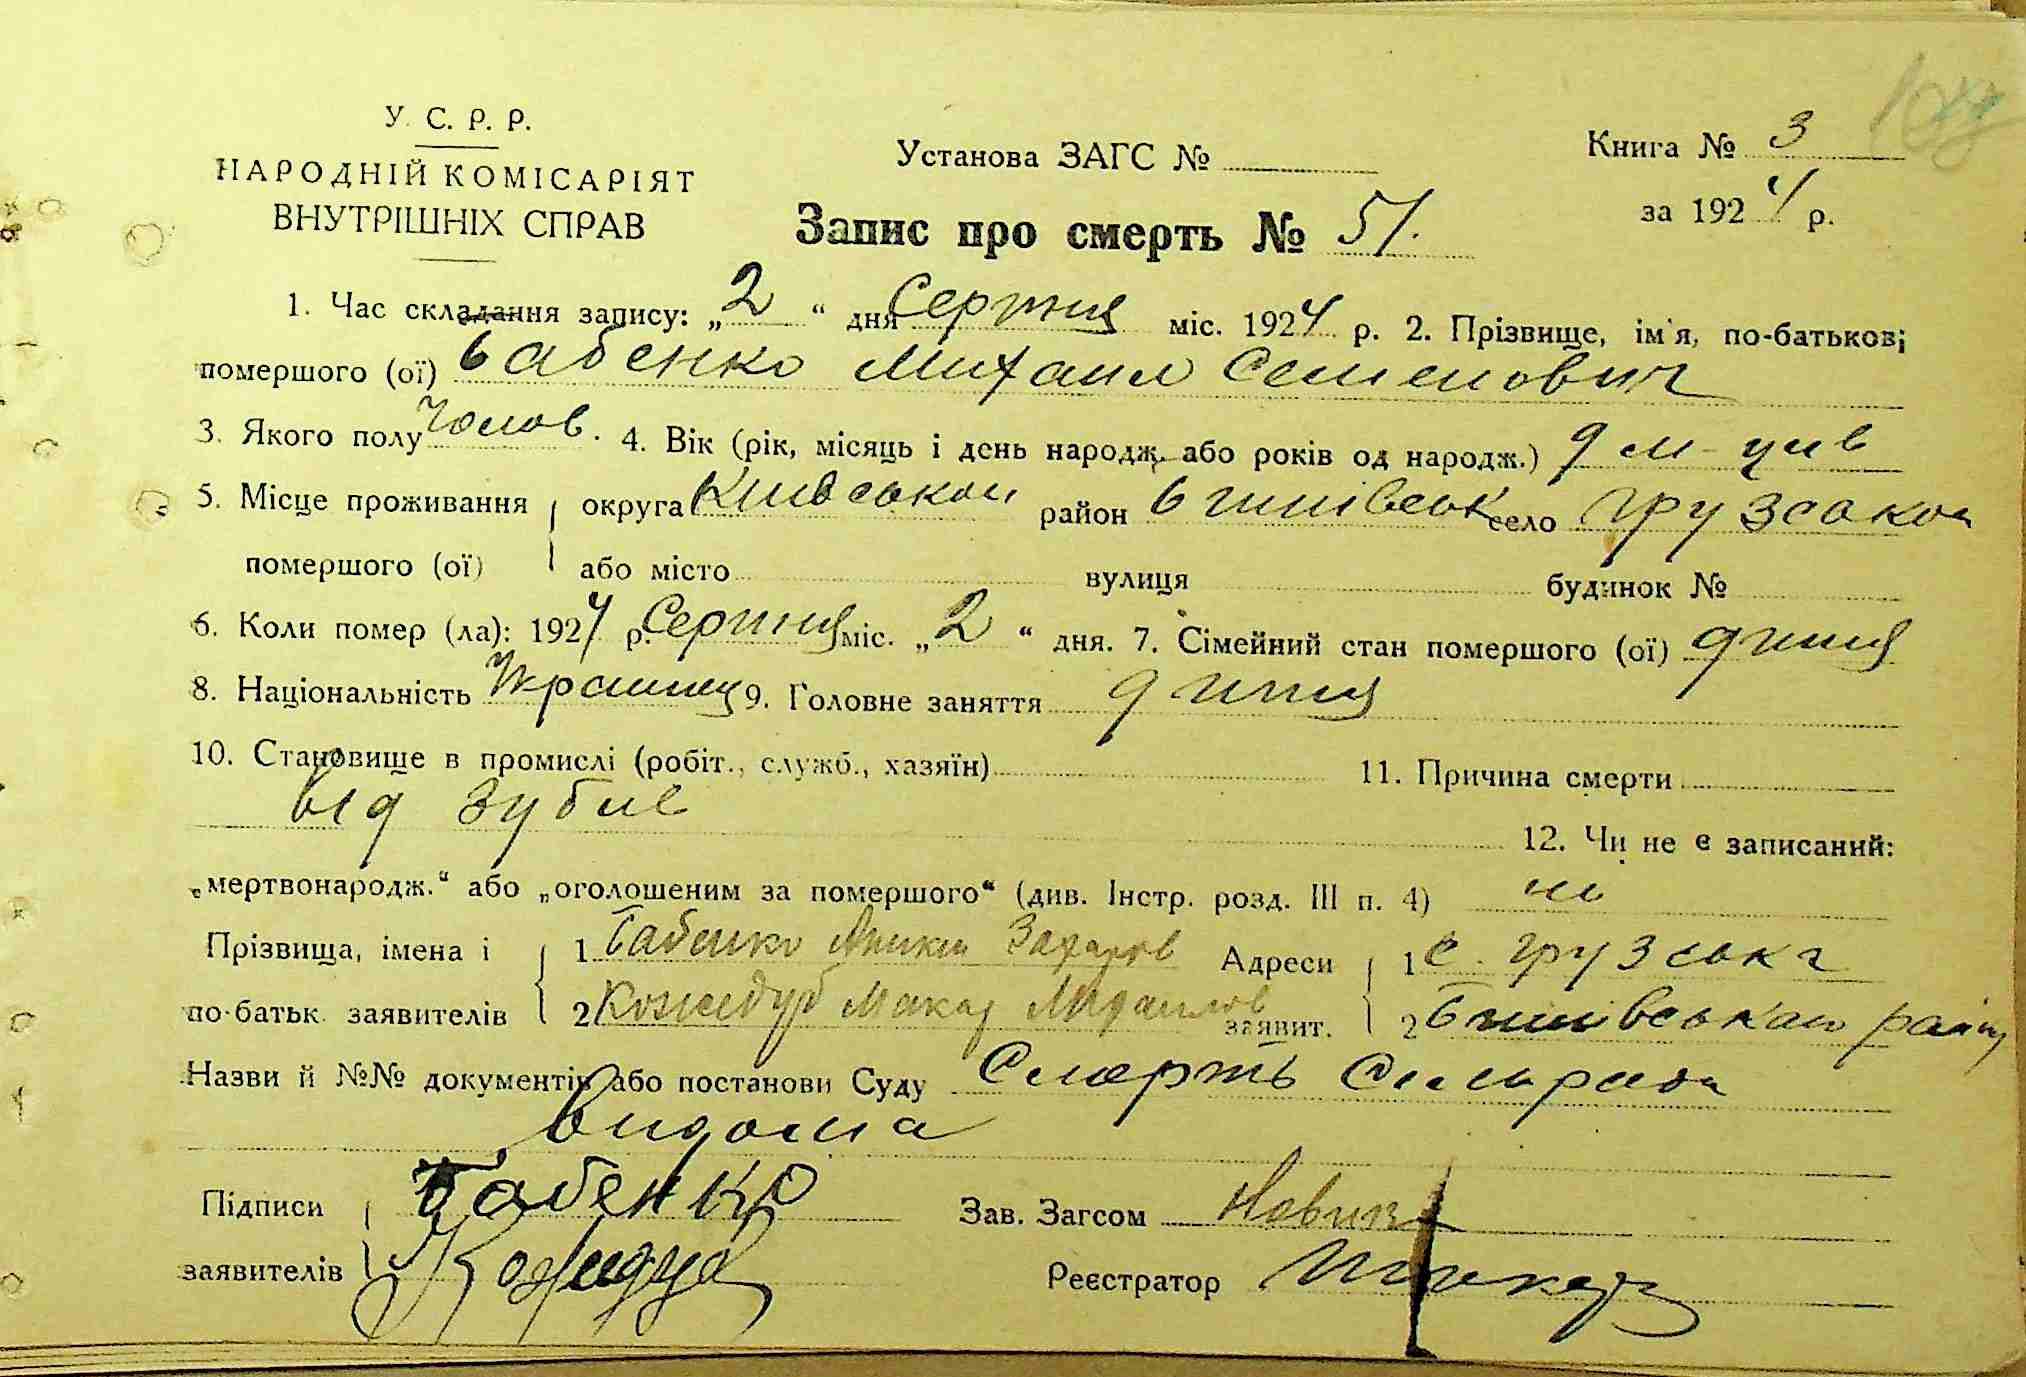 У. С. Р. Р.
НАРОДНІЙ КОМІСАРІЯТ
ВНУТРІШНІХ СПРАВ
Установа ЗАГС №
Книга № 3
за 1924 р.
Запис про смерть № 51.
1. Час складання запису: „2“ дня Серпня міс. 1924 р. 2. Прізвище, ім'я, по-батькові
помершого (ої) Бабенко Михаил Семенович
3. Якого полу Чолов. 4. Вік (рік, місяць і день народж. або років од народж.) 9 м-цив
5. Місце проживання округа Киівськой район Бишівськ село Грузськой
помершого (ої) або місто вулиця будинок №
6. Коли помер (ла): 1924 р. Серпня міс. „2“ дня. 7. Сімейний стан помершого (ої) дитя
8. Національність Украинец 9. Головне заняття дитя
10. Становище в промислі (робіт., служб., хазяїн) 11. Причина смерти
від зубив
12. Чи не є записаний:
„мертвонародж.“ або „оголошеним за помершого“ (див. Інстр. розд. III п. 4) ни
Прізвища, імена і 1 Бабенко Захаров Адреси 1 с. Грузська
по-батьк. заявителів 2 Кожедуб Макар Михаилов заявит. 2 Бишівськаго району
Назви й №№ документів або постанови Суду Смерть Сельради
видома
Підписи Бабенко Зав. Загсом
заявителів Кожедуб Реєстратор